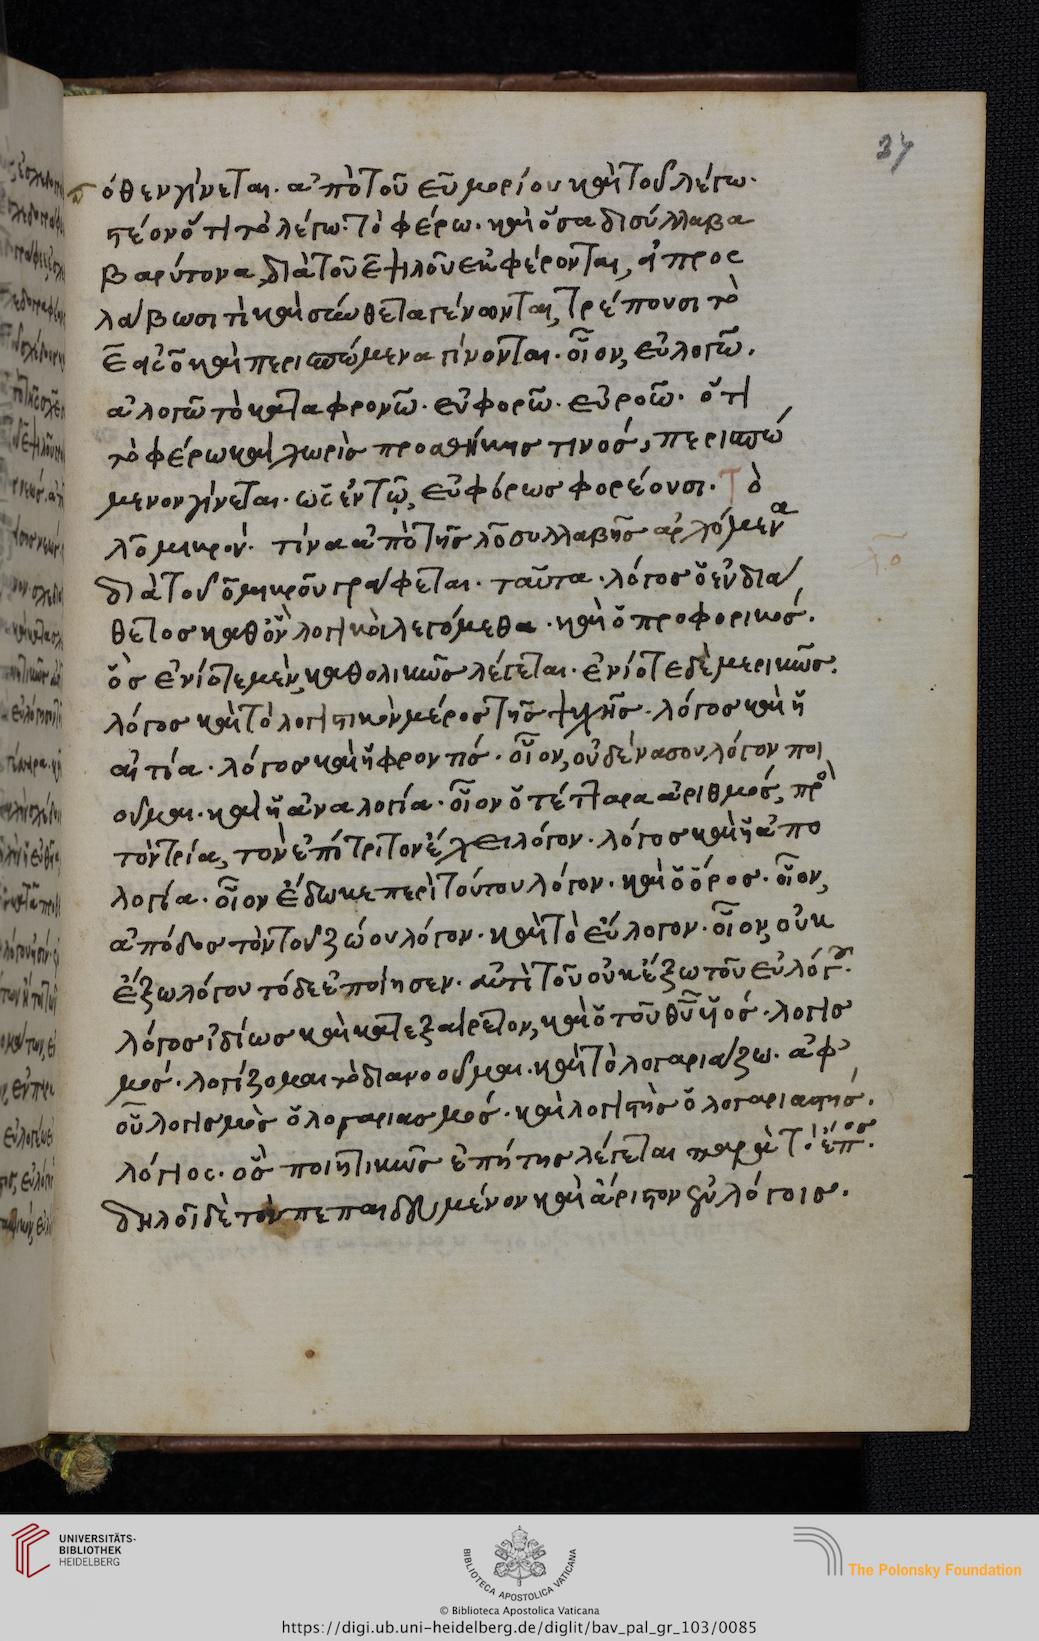 37
ὅθεν γίνεται. ἀπὸ τοῦ εὖ μορίου καὶ τοῦ λέγω.
ἰστέον ὅτι τὸ λέγω. τὸ φέρω. καὶ ὅσα δισύλλαβα
βαρύτονα, διὰ τοῦ ε̄ ψιλοῦ ἐκφέρονται, εἰ προς
λάβωσι τὶ καὶ σύνθετα γένωνται, τρέπουσι τὸ
ε̄ εἰς ο̄ καὶ περισπώμενα γίνονται. οἷον, εὐλογῶ.
ἀλογῶ τὸ καταφρονῶ. εὐφορῶ. εὐροῶ. ὅτι
τὸ φέρω καὶ χωρὶς προσθήκης τινός, περισπώ
μενον γίνεται. ὡς ἐν τῷ, εὐφόρως φορέουσι. Τὸ
λο̄ μικρόν. τίνα ἀπὸ τῆς λο̄ συλλαβῆς ἀρχόμενα
λο̄
διὰ τοῦ ο̄ μικροῦ γράφεται. ταῦτα. λόγος ὁ ἐνδιά
θετος καθ' ὃν λογικοὶ λεγόμεθα. καὶ ὁ προφορικός.
ὃς ἐνίοτε μὲν, καθολικῶς λέγεται. ἐνίοτε δὲ μερικῶς.
λόγος καὶ τὸ λογιστικὸν μέρος τῆς ψυχῆς. λόγος καὶ ἡ
αἰτία. λόγος καὶ ἡ φροντίς. οἷον, οὐδένα σου λόγον ποι
οῦμαι. καὶ ἡ ἀναλογία. οἷον ὁ τέτταρα ἀριθμός, πρὸς
τὸν τρία, τὸν ἐπίτριτον ἔχει λόγον. λόγος καὶ ἡ ἀπο
λογία. οἷον ἔδωκε περὶ τούτου λόγον. καὶ ὁ ὅρος. οἷον,
ἀπόδος τὸν τοῦ ζώου λόγον. καὶ τὸ εὔλογον. οἷον, οὐκ
ἔξω λόγου τόδε ἐποίησεν. ἀντὶ τοῦ οὐκ ἔξω τοῦ εὐλόγου.
λόγος ἰδίως καὶ κατ' ἐξαίρετον, καὶ ὁ τοῦ θ̅υ̅ υἱός. λογισ
μός. λογίζομαι τὸ διανοοῦμαι. καὶ τὸ λογαριάζω. ἀφ'
οὗ λογισμὸς ὁ λογαριασμός. καὶ λογιστὴς ὁ λογαριαστής.
λόγιος. ὃς ποιητικῶς ἐπητὴς λέγεται παρὰ τὸ ἔπος.
δηλοῖ δὲ τὸν πεπαιδευμένον καὶ ἄριστον ἐν λόγοις.
UNIVERSITÄTS-
BIBLIOTHEK
HEIDELBERG
BIBLIOTECA APOSTOLICA VATICANA
The Polonsky Foundation
© Biblioteca Apostolica Vaticana
https://digi.ub.uni-heidelberg.de/diglit/bav_pal_gr_103/0085